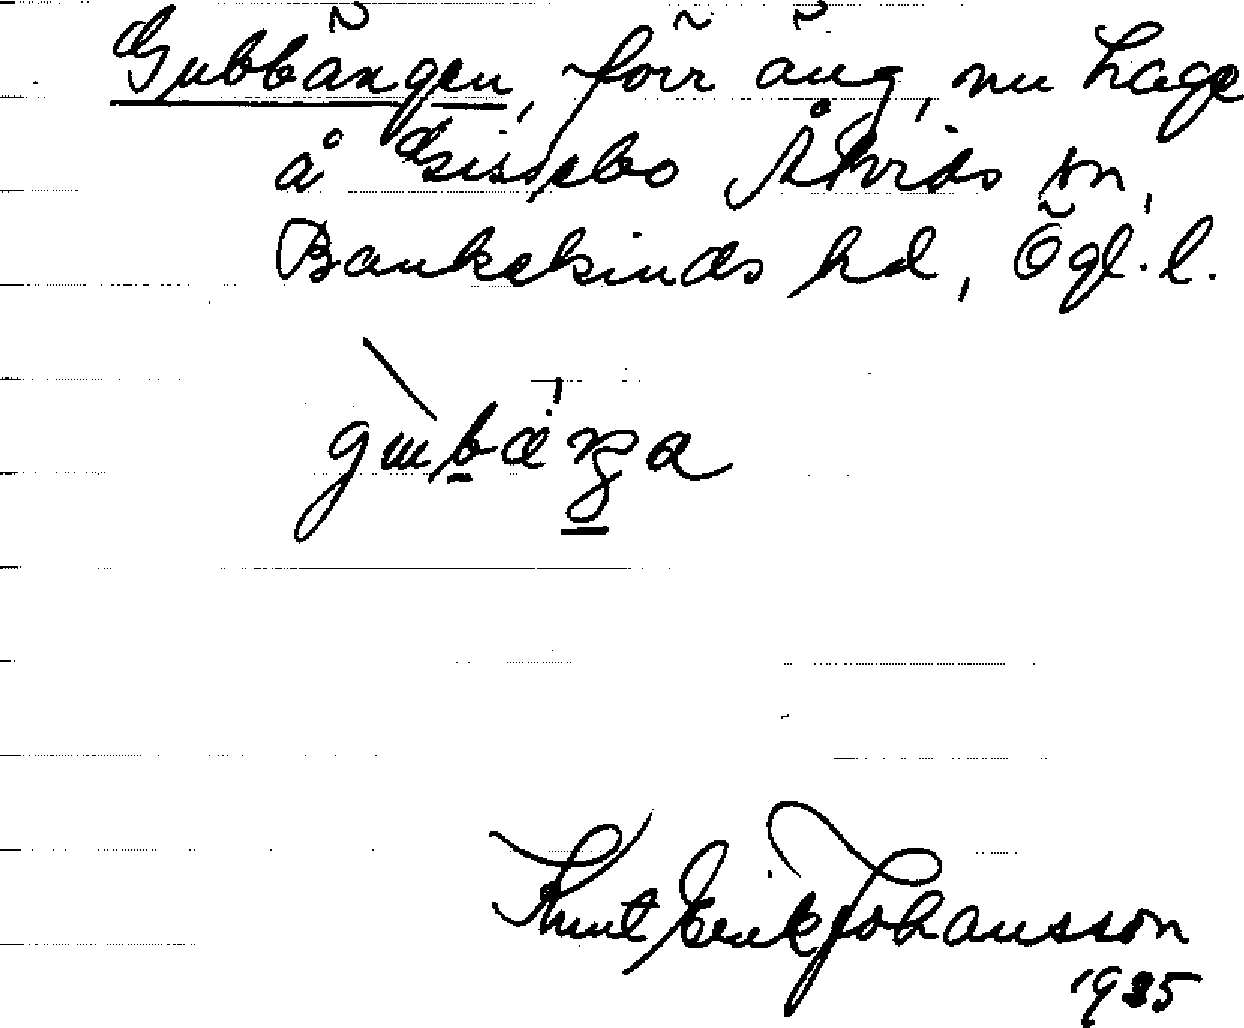 Gubbängen, förr äng, nu hage
å Gissebo Åtvids sn,
Bankekinds hd, Ögl. l.
Knut Erik Johansson
1935